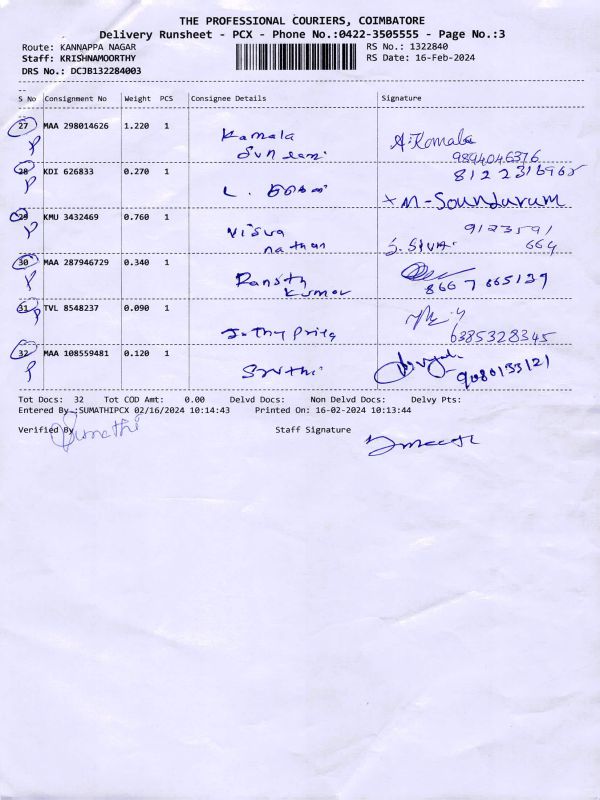 THE PROFESSIONAL COURIERS, COIMBATORE
Delivery Runsheet - PCX - Phone No.:0422-3505555 - Page No.:3
Route: KANNAPPA NAGAR
RS No.: 1322840
Staff: KRISHNAMOORTHY
RS Date: 16-Feb-2024
DRS No.: DCJB132284003
S No Consignment No Weight PCS Consignee Details Signature
27 MAA 298014626 1.220 1 Kamala A. Komala
9894046376
28 KDI 626833 0.270 1 L.
+ M-Soundurum
29 KMU 3432469 0.760 1 Viswa 9123591
nathan S. SIVA. 664
30 MAA 287946729 0.340 1 Ranjith
Kumar 8667665139
31 TVL 8548237 0.090 1
Jothypriya 6385328345
32 MAA 108559481 0.120 1 Sruthi 9080133121
Tot Docs: 32 Tot COD Amt: 0.00 Delvd Docs: Non Delvd Docs: Delvy Pts:
Entered By :SUMATHIPCX 02/16/2024 10:14:43 Printed On: 16-02-2024 10:13:44
Verified By Sumathi Staff Signature